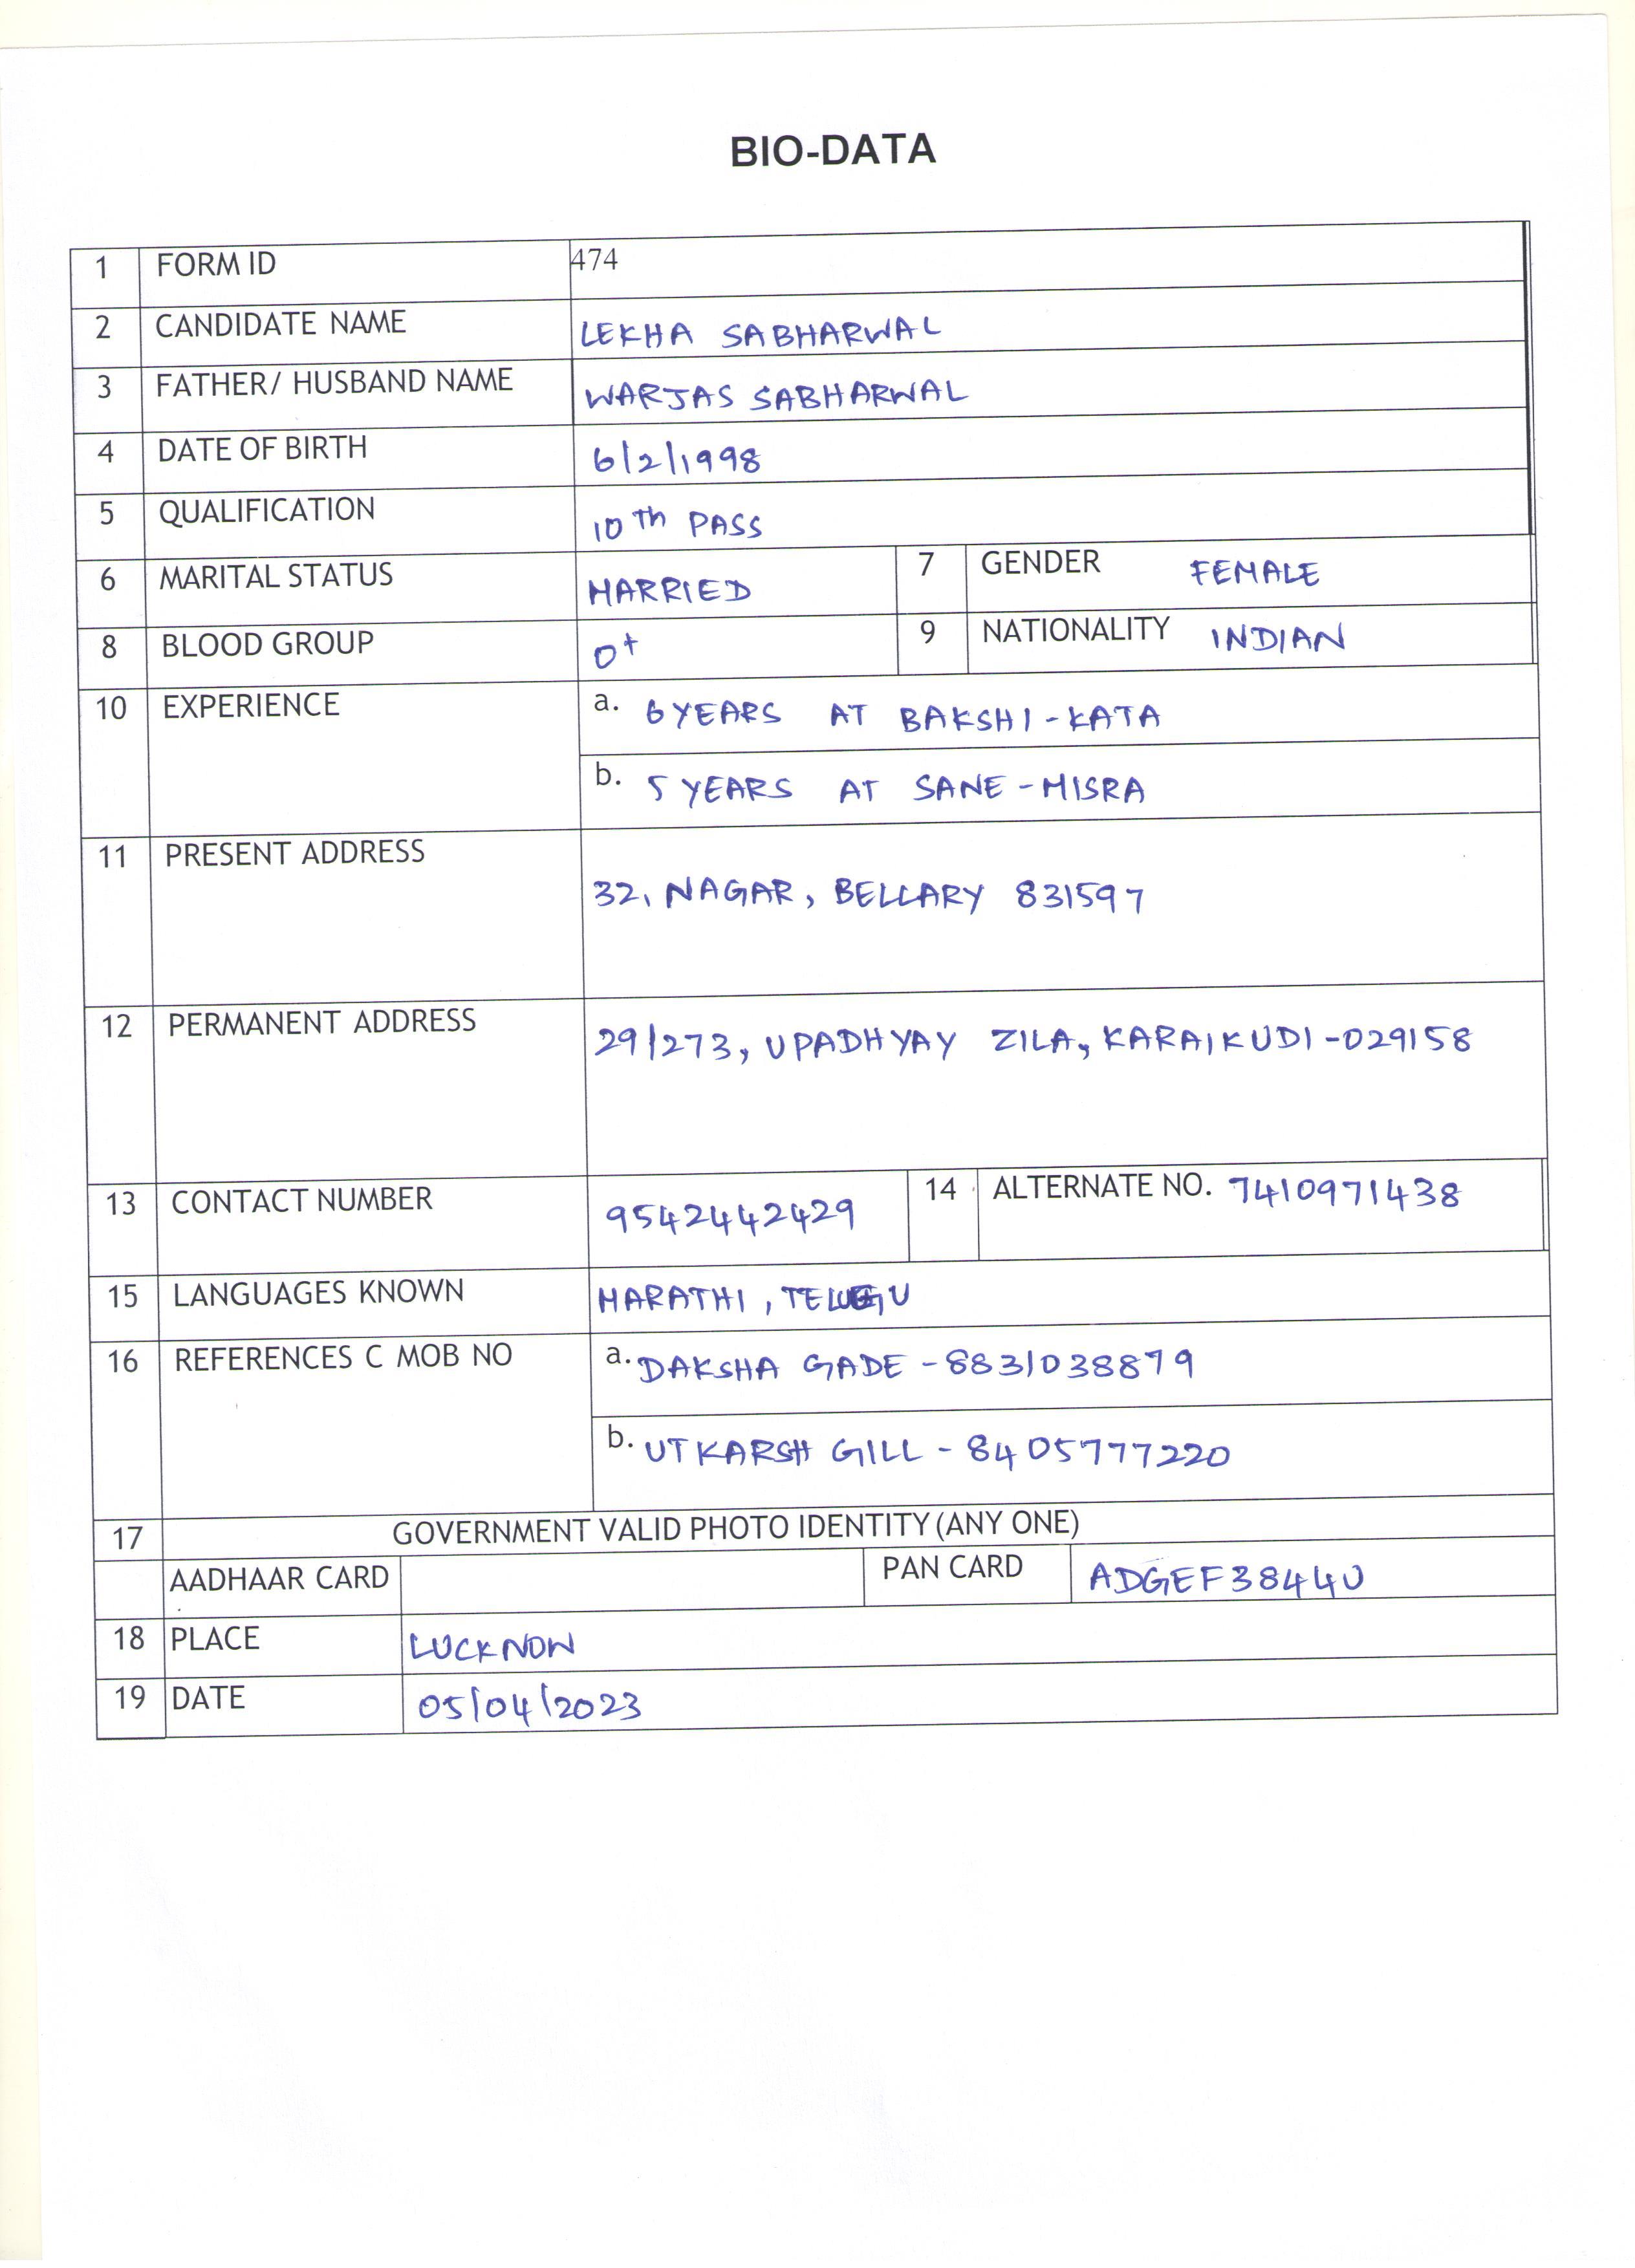 BIO-DATA
1 FORM ID 474
2 CANDIDATE NAME LEKHA SABHARWAL
3 FATHER/ HUSBAND NAME WARJAS SABHARWAL
4 DATE OF BIRTH 6/2/1998
5 QUALIFICATION 10Th PASS
6 MARITAL STATUS MARRIED 7 GENDER FEMALE
8 BLOOD GROUP O+ 9 NATIONALITY INDIAN
10 EXPERIENCE a. 6 YEARS AT BAKSHI-KATA
b. 5 YEARS AT SANE-MISRA
11 PRESENT ADDRESS
32, NAGAR, BELLARY 831597
12 PERMANENT ADDRESS 29/273, UPADHYAY ZILA, KARAIKUDI-029158
13 CONTACT NUMBER 9542442429 14 ALTERNATE NO. 7410971438
15 LANGUAGES KNOWN MARATHI, TELUGU
16 REFERENCES C MOB NO a. DAKSHA GADE - 8831038879
b. UTKARSH GILL - 8405777220
17 GOVERNMENT VALID PHOTO IDENTITY (ANY ONE)
AADHAAR CARD PAN CARD ADGEF3844U
18 PLACE LUCKNOW
19 DATE 05/04/2023